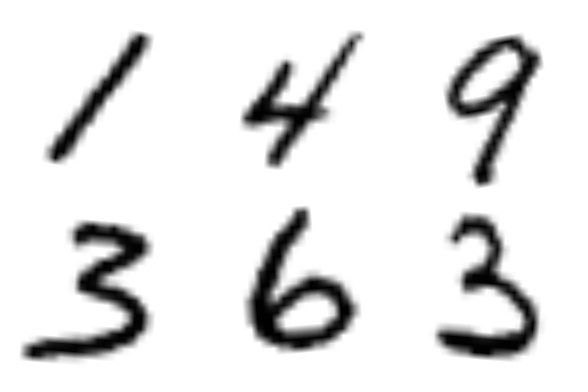 1 4 9
3 6 3